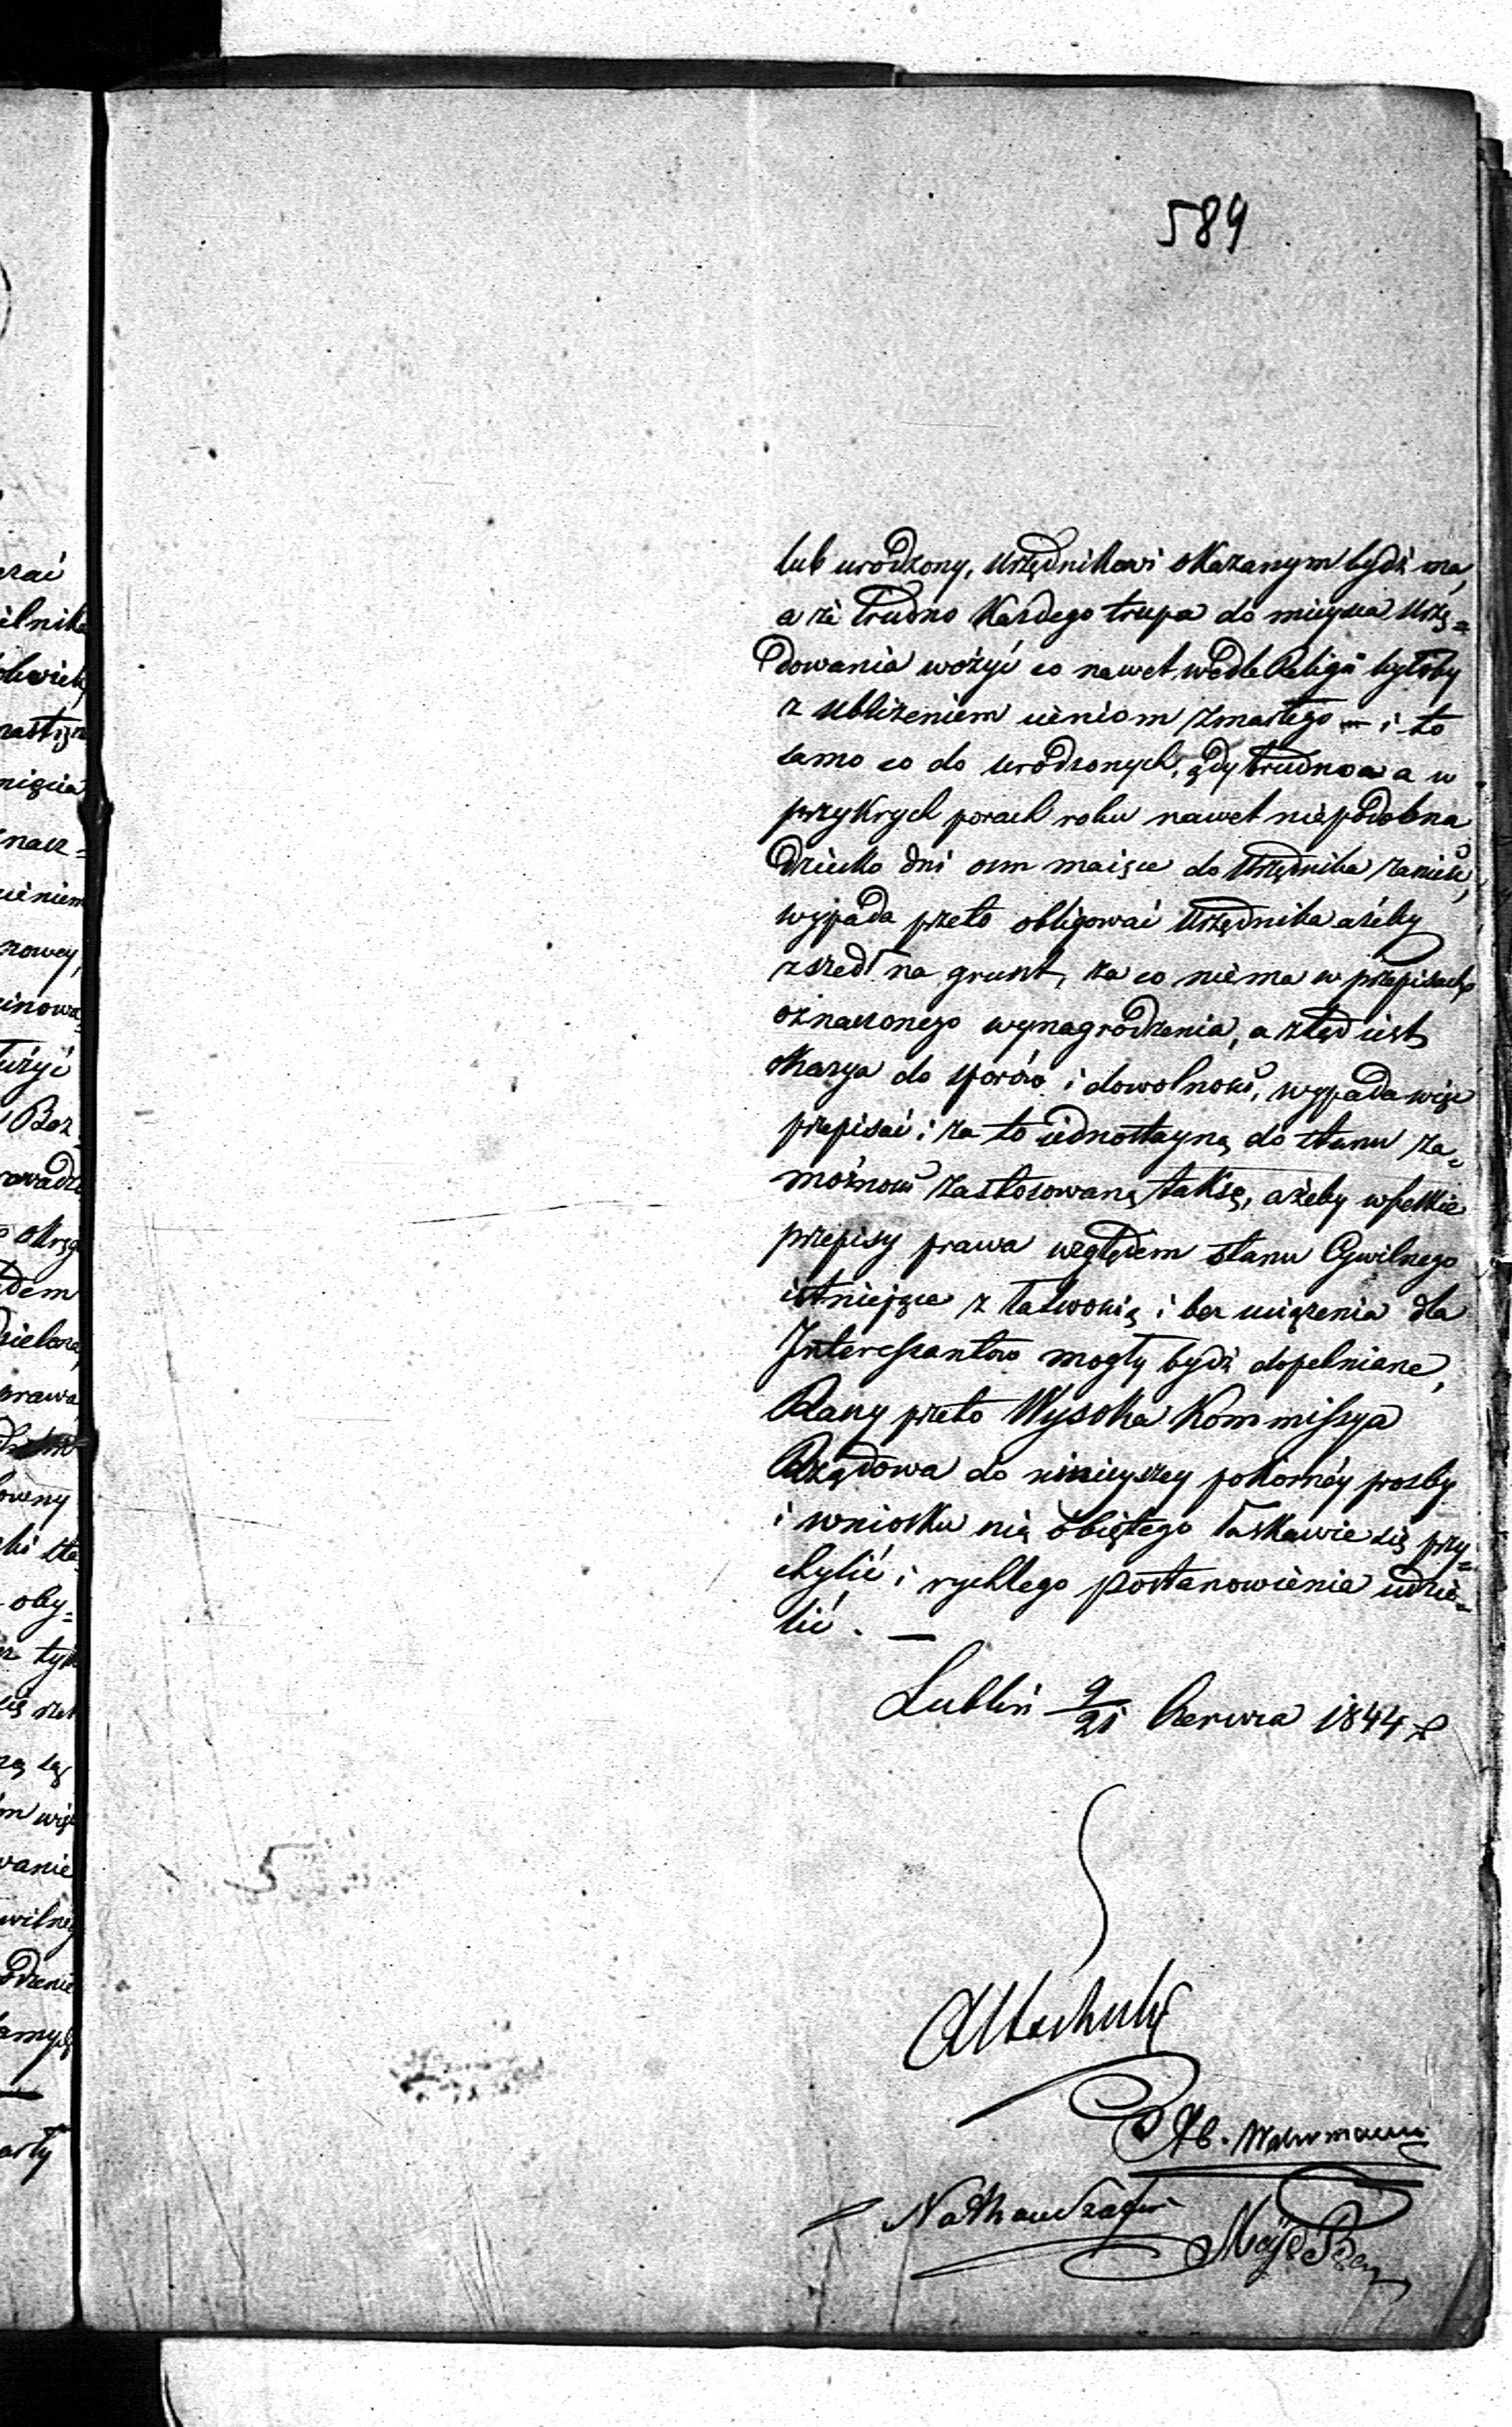 589
lub urodzony, Urzędnikowi okazanym bydź ma,
a że trudno każdego trupa do mieysca Urzę=
dowania wozyć co nawet wedle Religii byłoby
z ubliżeniem cieniom zmarłego — i to
samo co do urodzonych, gdy trudno a w
przykrych porach roku nawet niepodobna
dziecko dni osm maiące do Urzędnika zanieść,
wypada przeto obligować Urzędnika ażeby
zszedł na grunt, za co niema w przepisach
oznaczonego wynagrodzenia, a ztąd iest
okazya do sporów i dowolności, wypada więc
przepisać i za to iednostayną do stanu za=
możności zastosowaną taksę, ażeby wszelkie
przepisy prawa względem stanu Cywilnego
istniejące z łatwością i bez uciążenia dla
Interessantow mogły bydź dopełniane,
Raczy przeto Wysoka Kommissya
Rządowa do ninieyszey pokornéy prosby
i wniosku nią obiętego łaskawie się przy=
chylić i rychłego postanowienia udzie=
lić. —
Lublin 9/21 Czerwca 1844 r
Ab. Wahrmann
Nathan
erać
ilnika
nięcia
nacz=
ieniem
nowey,
użyć
Boz
okręg
dem
prawa
oby=
tym
więc
wanie